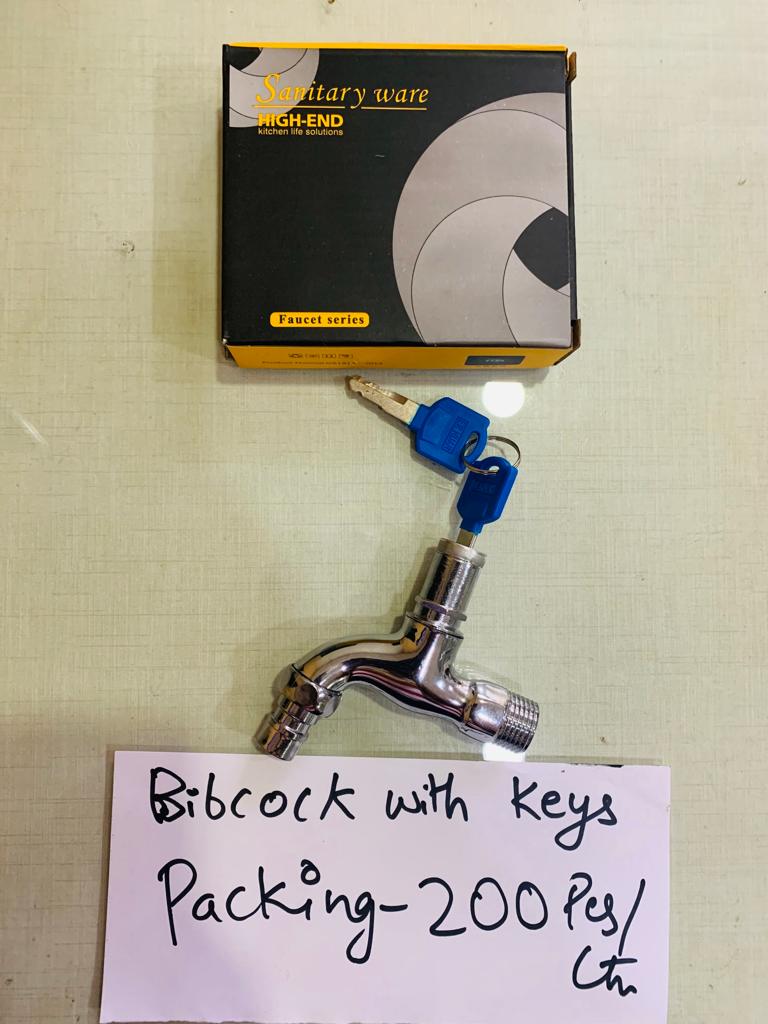 Sanitary ware
HIGH-END
kitchen life solutions
Faucet series
Bibcock with Keys
Packing-200 Pcs/
Ctn